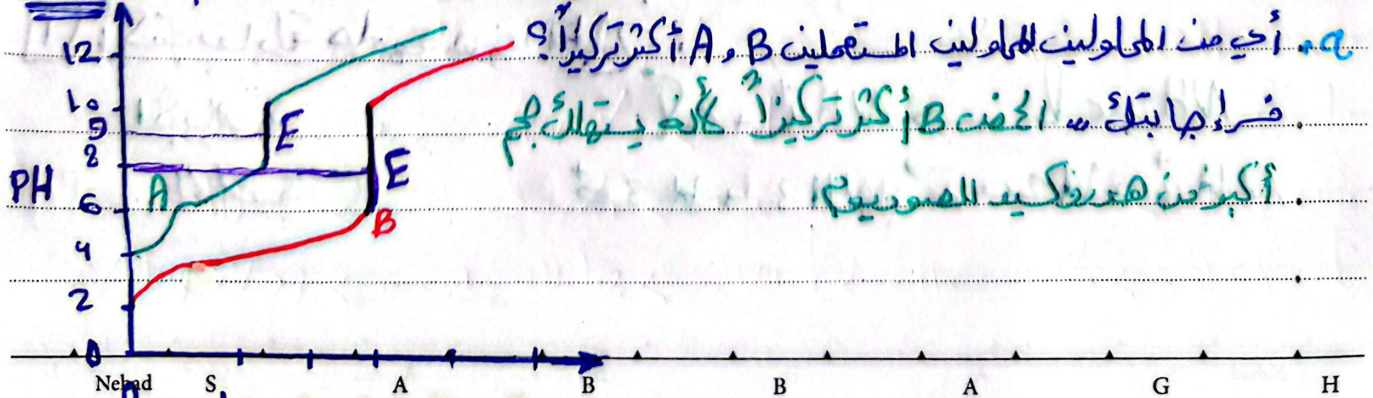 a. أي من المحلولين للمحلولين المستعملين B و A أكثر تركيزاً؟
فسر إجابتك .. الحمض B أكثر تركيزاً لأنه يستهلك حجم
أكبر من هيدروكسيد الصوديوم.
12
10
9
8
PH
6
4
2
0
A
E
E
B
Nehad S A B B A G H